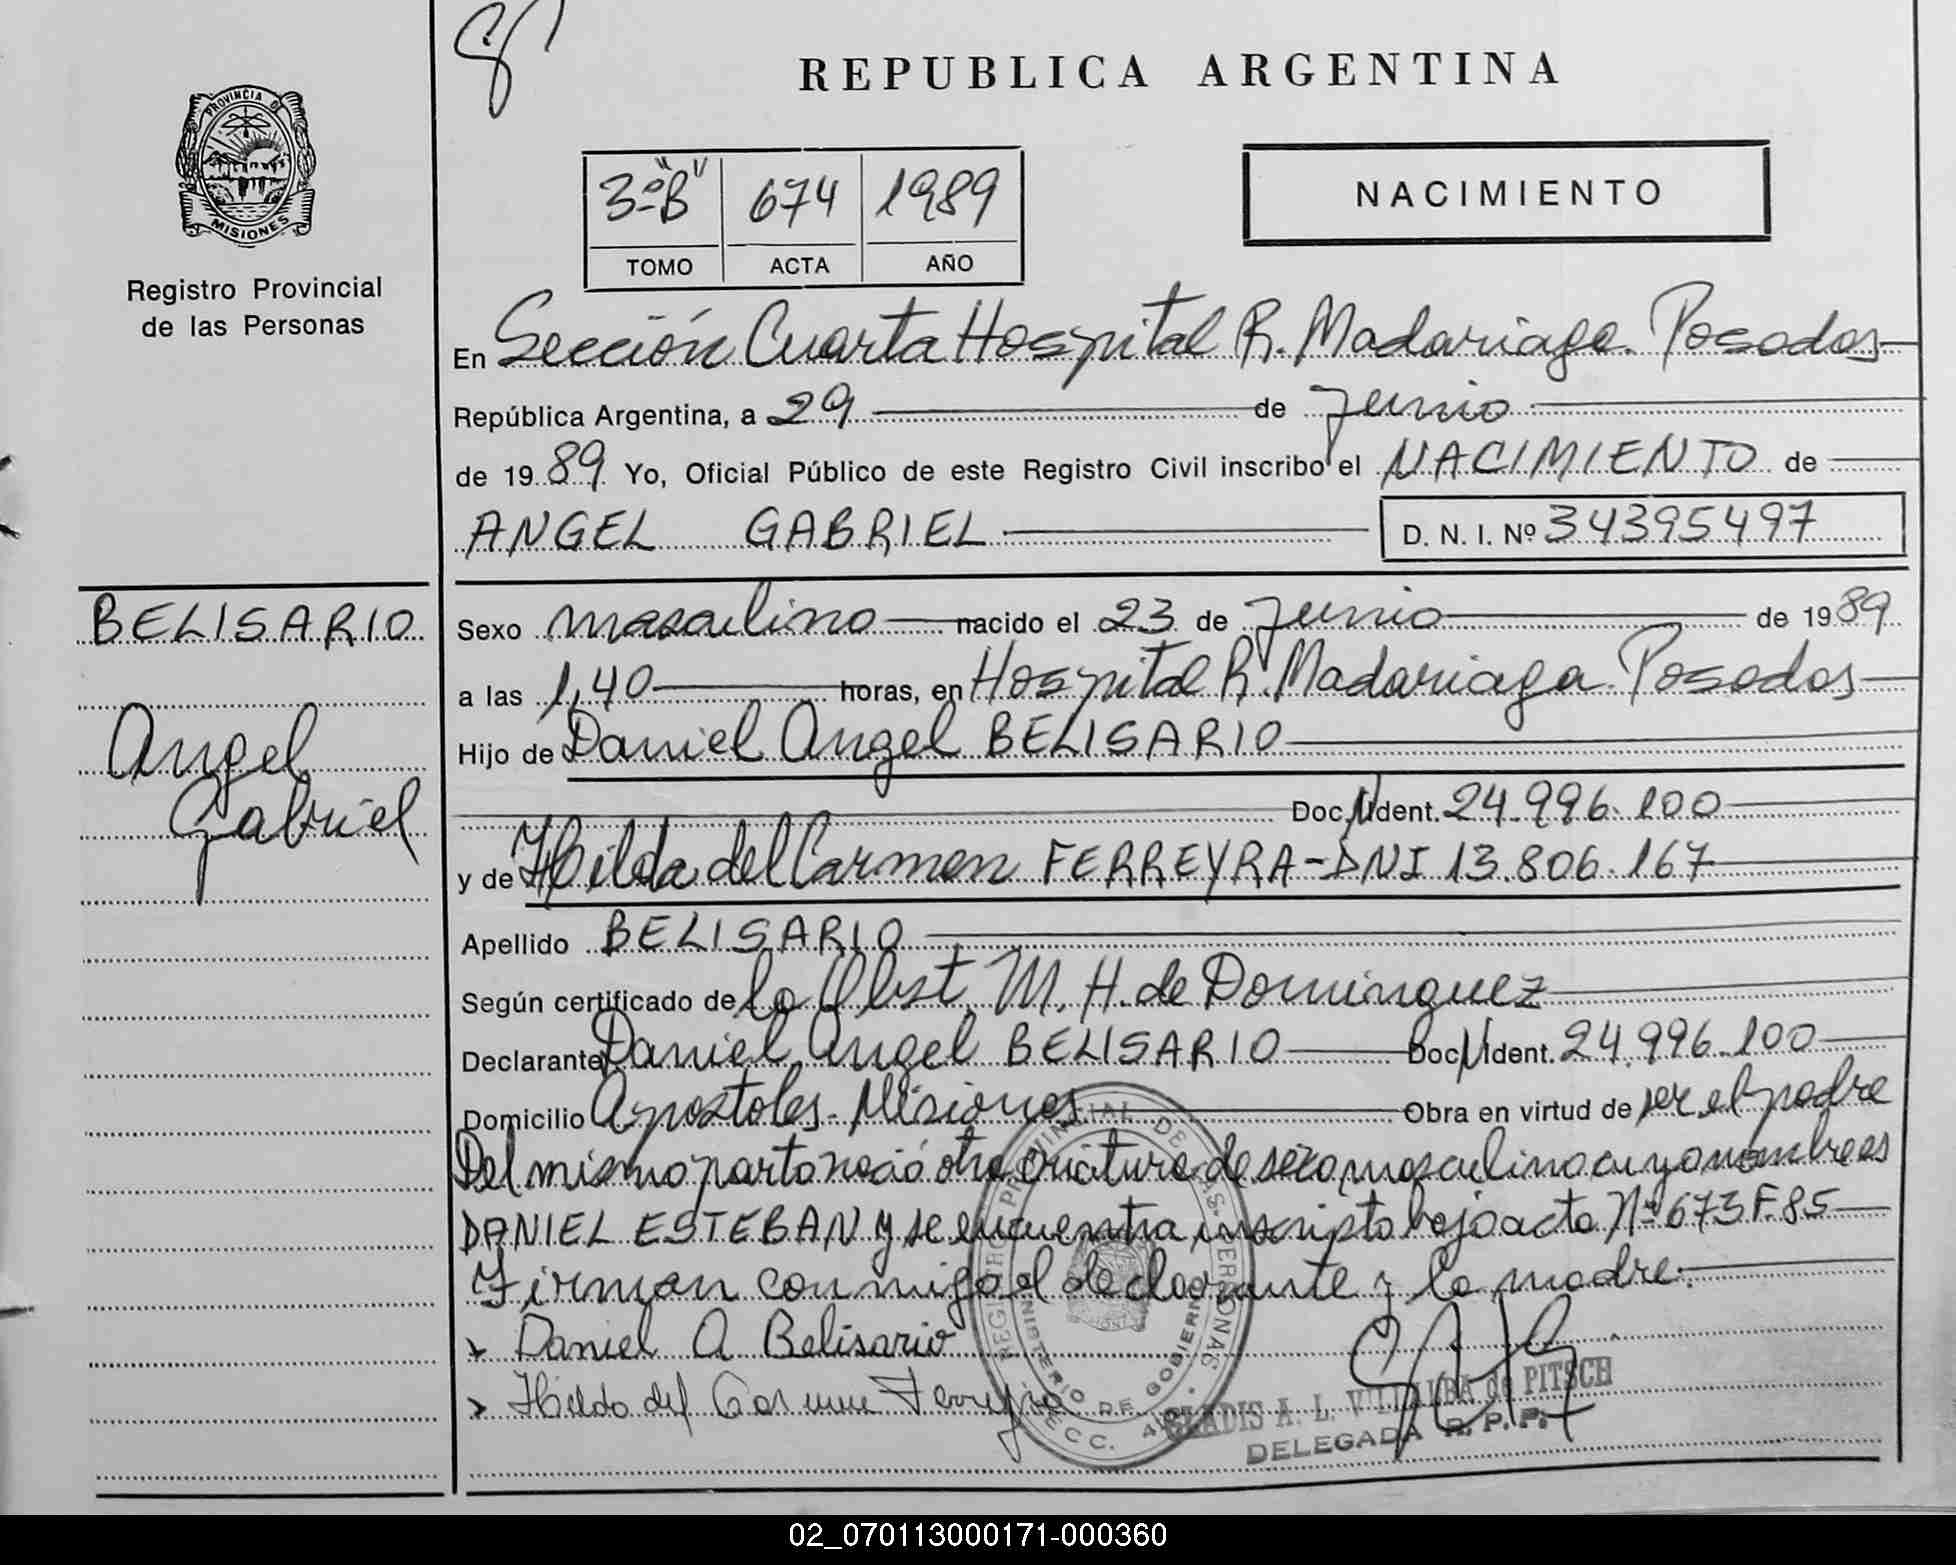 REPUBLICA ARGENTINA
PROVINCIA DE
MISIONES
Registro Provincial
de las Personas
3º "B" 674 1989
TOMO ACTA AÑO
NACIMIENTO
En Sección Cuarta Hospital R. Madariaga. Posadas
República Argentina, a 29 de Junio
de 1989 Yo, Oficial Público de este Registro Civil inscribo el NACIMIENTO de
ANGEL GABRIEL D. N. I. Nº 34395497
BELISARIO
Angel
Gabriel
Sexo masculino nacido el 23 de Junio de 1989
a las 1,40 horas, en Hospital R. Madariaga. Posadas
Hijo de Daniel Angel BELISARIO
Doc. Ident. 24.996.100
y de Hilda del Carmen FERREYRA - DNI 13.806.167
Apellido BELISARIO
Según certificado de la Obst. M. H. de Dominguez
Declarante Daniel Angel BELISARIO Doc. Ident. 24.996.100
Domicilio Apostoles - Misiones Obra en virtud de ser el padre
Del mismo parto nació otra criatura de sexo masculino cuyo nombre es
DANIEL ESTEBAN y se encuentra inscripto bajo acta Nº 673 F. 85
Firman conmigo el declarante y la madre.
Daniel A Belisario
Hilda del Carmen Ferreyra
REGISTRO PROVINCIAL DE LAS PERSONAS
MINISTERIO DE GOBIERNO
GLADIS A. L. VILLALBA de PITSCH
DELEGADA R. P. P.
02_070113000171-000360